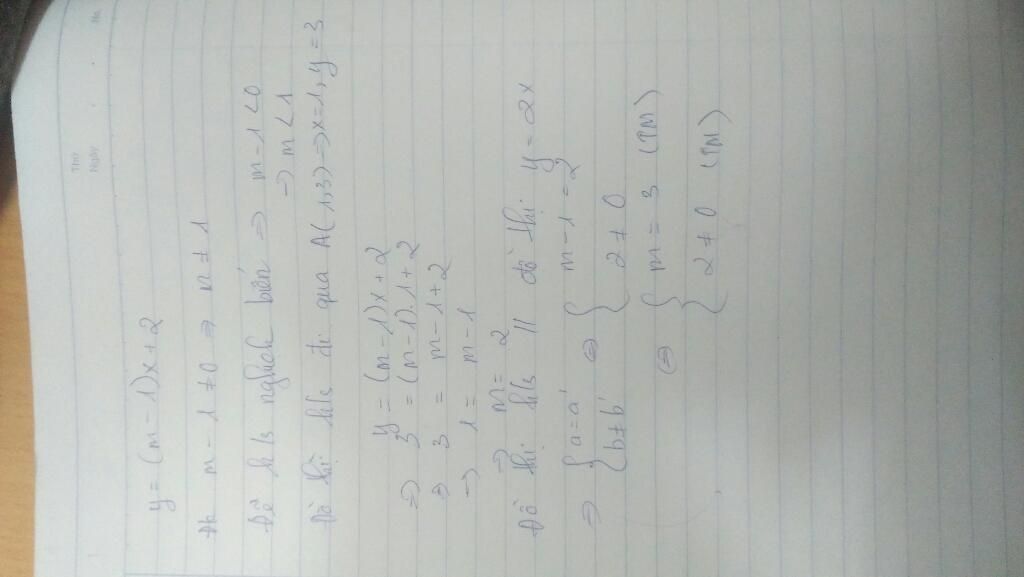 Thứ
Ngày
No.
y = (m - 1)x + 2
Đk m - 1 ≠ 0 => m ≠ 1
Để hàm số nghịch biến => m - 1 < 0
-> m < 1
Đồ thị hs đi qua A(1,3) -> x = 1, y = 3
y = (m - 1)x + 2
=> 3 = (m - 1).1 + 2
=> 3 = m - 1 + 2
-> 1 = m - 1
-> m = 2
Đồ thị hs // đồ thị y = 2x
=> { a = a' => { m - 1 = 2
b ≠ b' 2 ≠ 0
=> { m = 3 (TM)
2 ≠ 0 (TM)